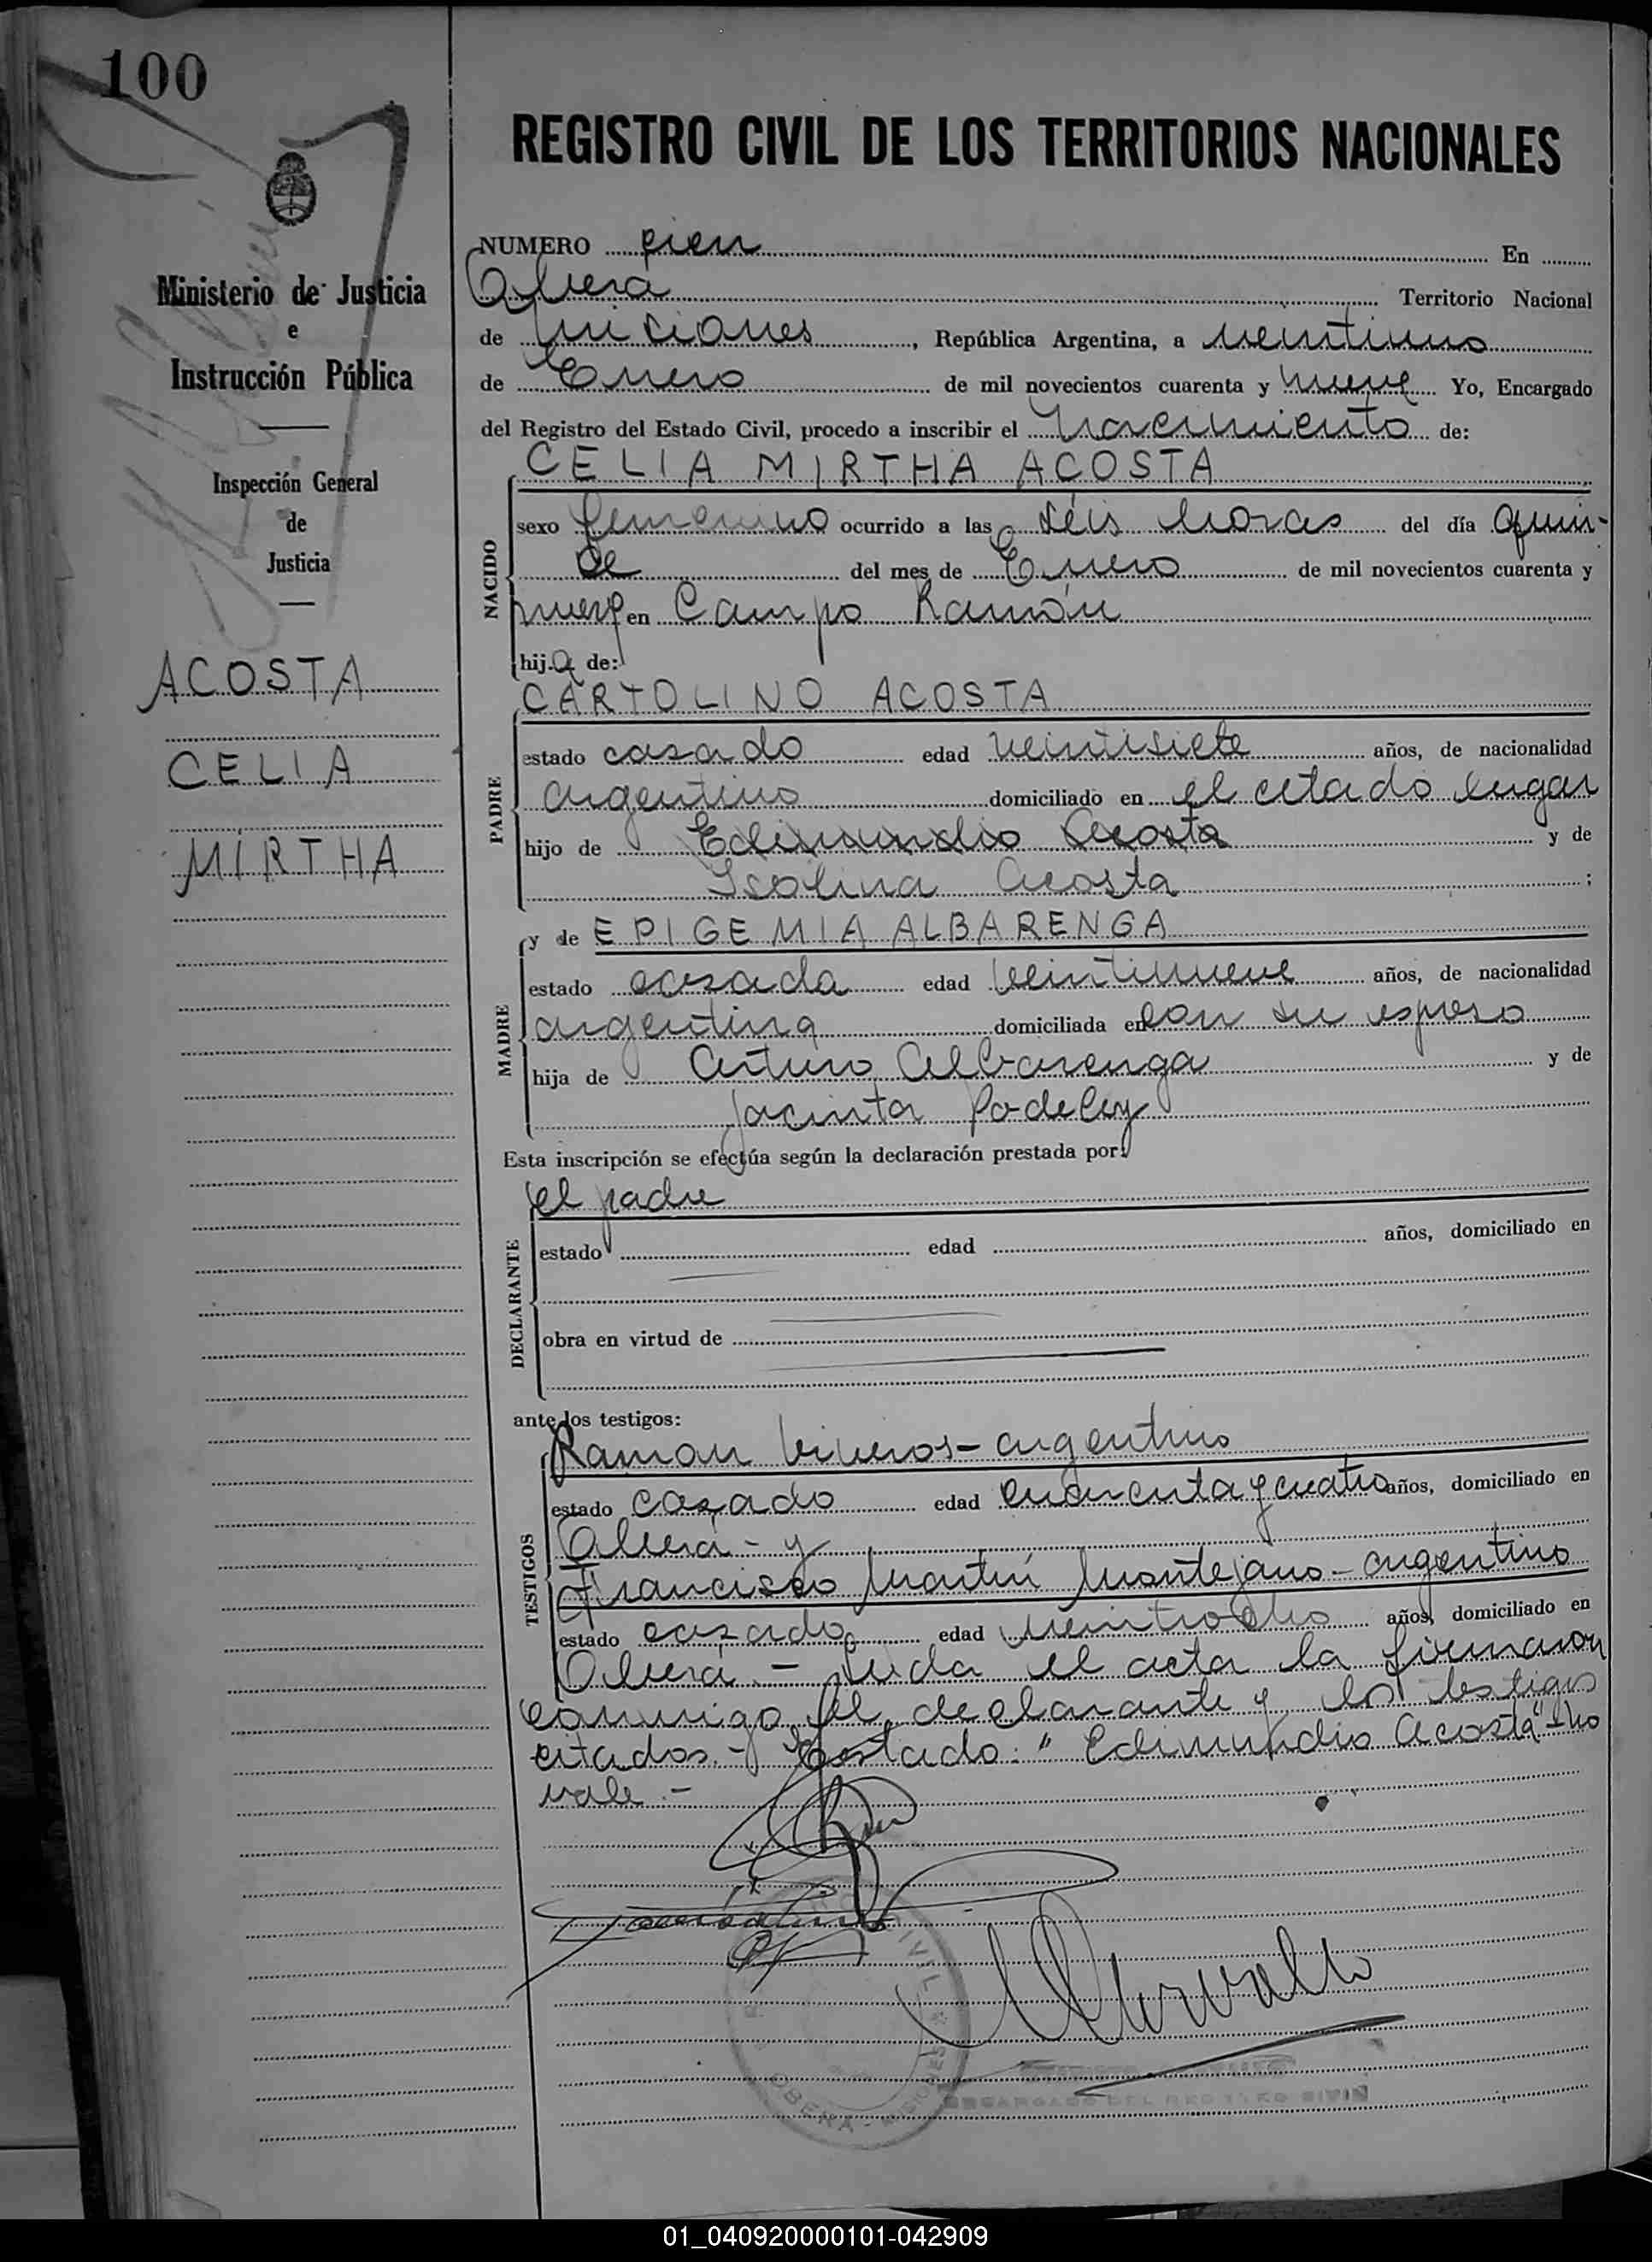 100
REGISTRO CIVIL DE LOS TERRITORIOS NACIONALES
Ministerio de Justicia
e
Instrucción Pública
Inspección General
de
Justicia
ACOSTA
CELIA
MIRTHA
NUMERO cien En
Oberá Territorio Nacional
de Misiones, República Argentina, a veintiuno
de Enero de mil novecientos cuarenta y nueve Yo, Encargado
del Registro del Estado Civil, procedo a inscribir el Nacimiento de:
CELIA MIRTHA ACOSTA
NACIDO
sexo femenino ocurrido a las seis horas del día quin-
ce del mes de Enero de mil novecientos cuarenta y
nueve en Campo Ramón
hija de:
CARTOLINO ACOSTA
PADRE
estado casado edad veintisiete años, de nacionalidad
argentino domiciliado en el citado lugar
hijo de Edimundio Acosta y de
Isolina Acosta ;
y de EPIGEMIA ALBARENGA
MADRE
estado casada edad veintinueve años, de nacionalidad
argentina domiciliada en con su esposo
hija de Arturo Albarenga y de
Jacinta Podeley
Esta inscripción se efectúa según la declaración prestada por:
el padre
DECLARANTE
estado edad años, domiciliado en
obra en virtud de
ante los testigos:
Ramon Viveros - argentino
TESTIGOS
estado casado edad cuarenta y cuatro años, domiciliado en
Oberá - y
Francisco Martín Montejano - argentino
estado casado edad veintiocho años, domiciliado en
Oberá - Leída el acta la firmaron
conmigo, el declarante y los testigos
citados. - Testado: "Edimundio Acosta" No
vale. -
CIVIL
OBERA - MISIONES
ENCARGADO DEL REGISTRO CIVIL
01_040920000101-042909